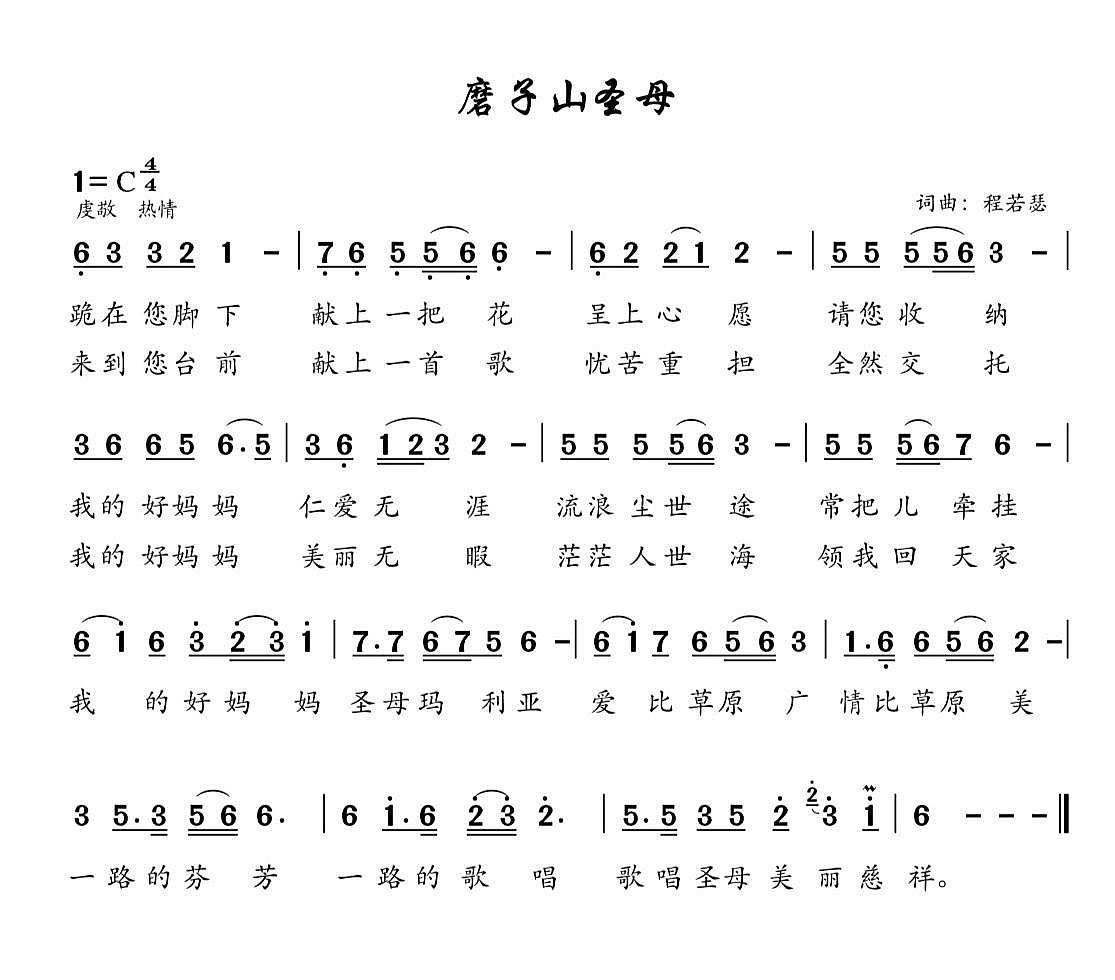 磨子山圣母
1=C 4/4
虔敬 热情
词曲：程若瑟
6 3 3 2 1 - | 7 6 5 5 6 6 - | 6 2 2 1 2 - | 5 5 5 5 6 3 - |
跪在您脚下 献上一把花 呈上心愿 请您收纳
来到您台前 献上一首歌 忧苦重担 全然交托
3 6 6 5 6. 5 | 3 6 1 2 3 2 - | 5 5 5 5 6 3 - | 5 5 5 6 7 6 - |
我的好妈妈 仁爱无涯 流浪尘世途 常把儿牵挂
我的好妈妈 美丽无暇 茫茫人世海 领我回天家
6 1 6 3 2 3 1 | 7. 7 6 7 5 6 - | 6 1 7 6 5 6 3 | 1. 6 6 5 6 2 - |
我的好妈妈 圣母玛利亚 爱比草原广 情比草原美
3 5. 3 5 6 6. | 6 1. 6 2 3 2. | 5. 5 3 5 2 2 3 1 | 6 - - - ‖
一路的芬芳 一路的歌唱 歌唱圣母美丽慈祥。